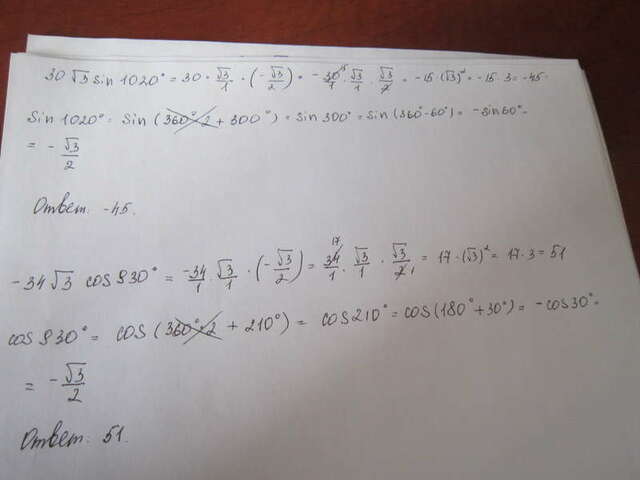 30 √3 sin 1020° = 30 · √3/1 · (-√3/2) = -30/1 · √3/1 · √3/2 = -15 · (√3)² = -15 · 3 = -45.
Sin 1020° = sin (360° · 2 + 300°) = sin 300° = sin (360° - 60°) = -sin 60° =
= -√3/2
Ответ: -45.
-34√3 cos 930° = -34/1 · √3/1 · (-√3/2) = 34/1 · √3/1 · √3/2 = 17 · (√3)² = 17 · 3 = 51
cos 930° = cos (360° · 2 + 210°) = cos 210° = cos (180° + 30°) = -cos 30° =
= -√3/2
Ответ: 51.